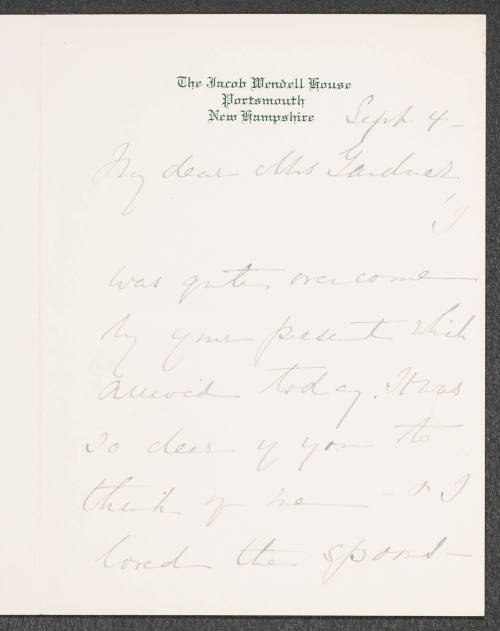 The Jacob Wendell House
Portsmouth
New Hampshire
Sept 4 –
My dear Mrs Gardner
I
was quite overcome
by your present which
arrived today. It was
so dear of you to
think of me – & I
loved the spoons –